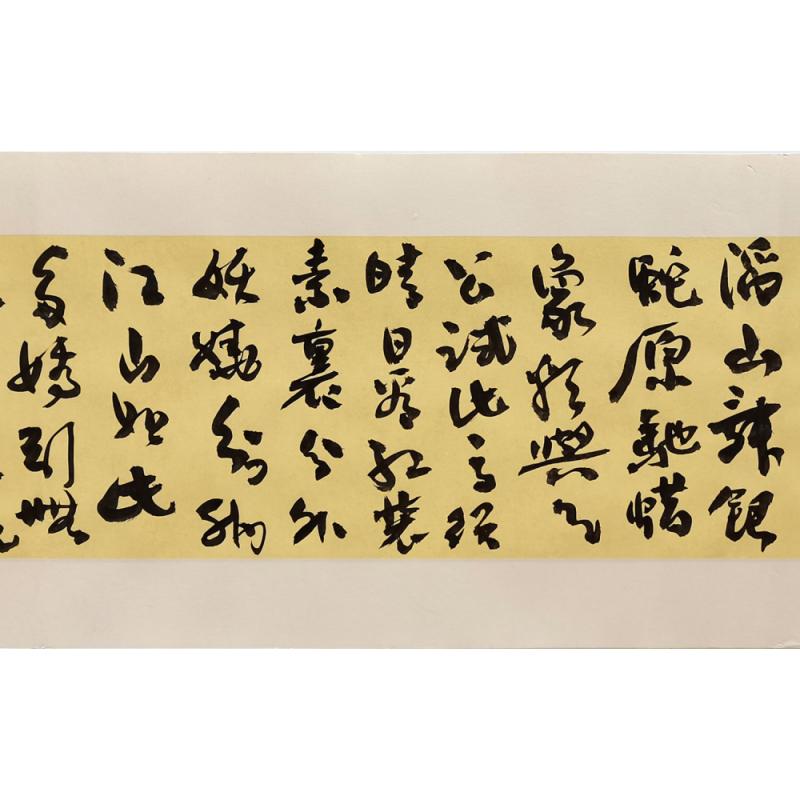 滔山舞銀
蛇原馳蜡
象欲與天
公試比高須
晴日看紅裝
素裹分外
妖嬈
江山如此
多嬌引無